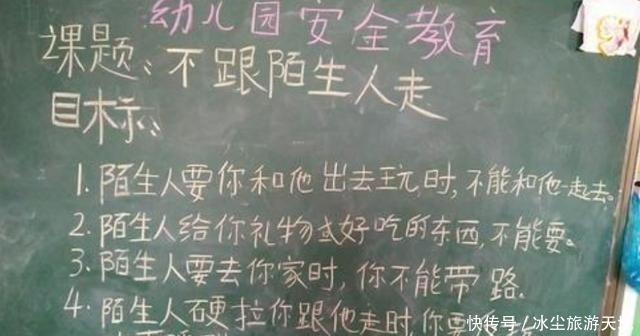 幼儿园安全教育
课题: 不跟陌生人走
目标:
1. 陌生人要你和他出去玩时, 不能和他一起去。
2. 陌生人给你礼物或好吃的东西, 不能要。
3. 陌生人要去你家时, 你不能带路.
4. 陌生人硬拉你跟他走时, 你
快传号/冰尘旅游天地